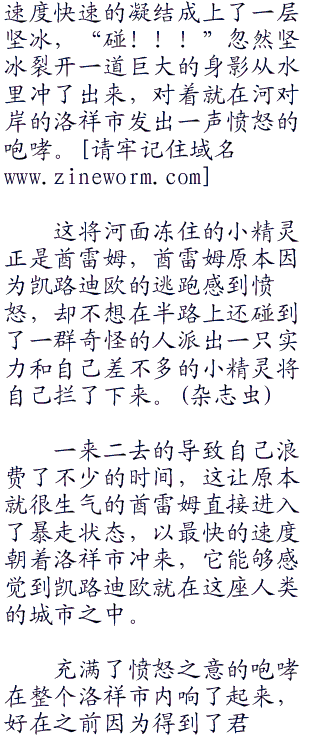 速度快速的凝结成上了一层
坚冰，“碰！！！”忽然坚
冰裂开一道巨大的身影从水
里冲了出来，对着就在河对
岸的洛祥市发出一声愤怒的
咆哮。[请牢记住域名
www.zineworm.com]
这将河面冻住的小精灵
正是酋雷姆，酋雷姆原本因
为凯路迪欧的逃跑感到愤
怒，却不想在半路上还碰到
了一群奇怪的人派出一只实
力和自己差不多的小精灵将
自己拦了下来。(杂志虫)
一来二去的导致自己浪
费了不少的时间，这让原本
就很生气的酋雷姆直接进入
了暴走状态，以最快的速度
朝着洛祥市冲来，它能够感
觉到凯路迪欧就在这座人类
的城市之中。
充满了愤怒之意的咆哮
在整个洛祥市内响了起来，
好在之前因为得到了君